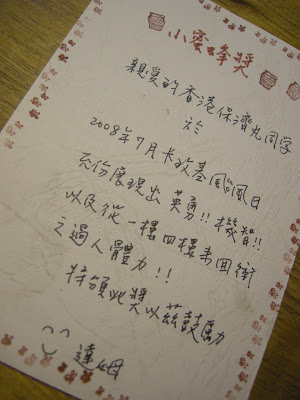 小蜜蜂獎
親愛的香港保濟丸同學
於
2008年7月卡玫基颱風日
充份展現出 英勇!! 機智!!
以及從一樓四樓來回衝
之過人體力!!
特頒此獎以茲鼓勵
達姆